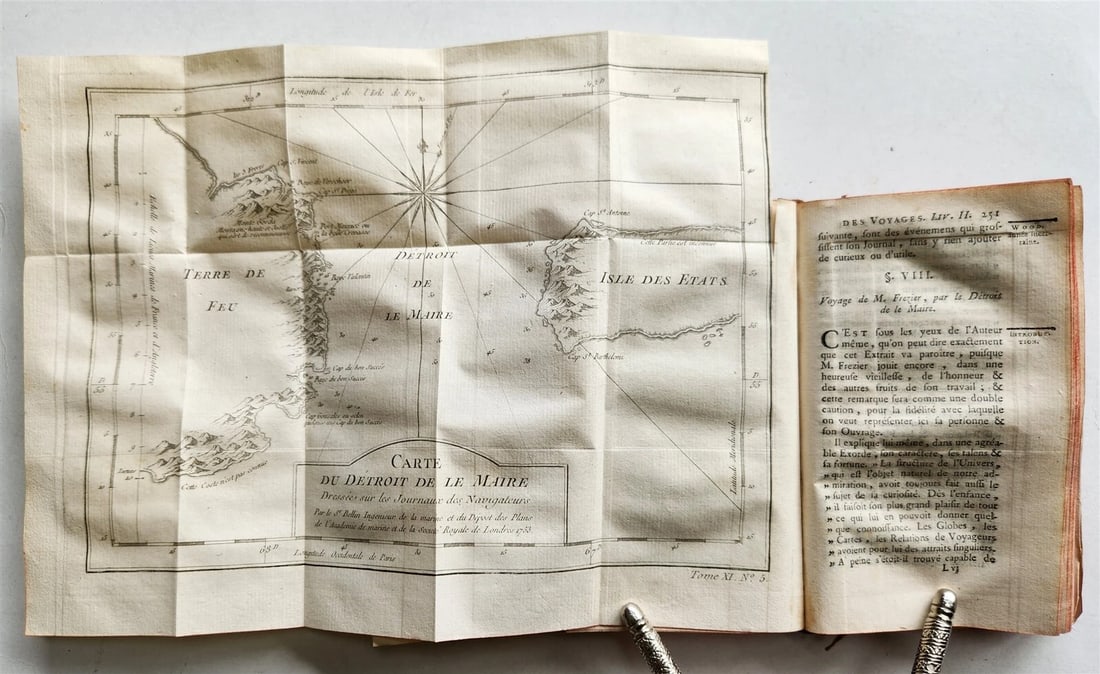 Longitude de l'Isle de Fer
Cap St. Vincent
TERRE DE
FEU
Baye Valentin
DETROIT
DE
LE MAIRE
Cap St. Antoine
Cette Partie est inconnue
ISLE DES ETATS
Cap St. Barthelemi
Cap de bon Succès
Baye de bon Succès
Cette Coste n'est pas connue
Echelle de Lieues Marines de France et d'Angleterre
Latitude Meridionale
CARTE
DU DÉTROIT DE LE MAIRE
Dressées sur les Journaux des Navigateurs
Par le Sr. Bellin Ingenieur de la marine et du Depost des Plans
de l'Academie de marine et de la Societé Royale de Londres 1753.
Longitude Occidentale de Paris
Tome XI. No. 5.
DES VOYAGES. LIV. II. 251
suivante, sont des événemens qui gros-
sissent son Journal, sans y rien ajouter
de curieux ou d'utile.
§. VIII.
Voyage de M. Frezier, par le Détroit
de le Maire.
INTRODUC-
TION.
C'EST sous les yeux de l'Auteur
même, qu'on peut dire exactement
que cet Extrait va paroître, puisque
M. Frezier jouit encore, dans une
heureuse vieillesse, de l'honneur &
des autres fruits de son travail ; &
cette remarque sera comme une double
caution, pour la fidélité avec laquelle
on veut représenter ici sa personne &
son Ouvrage.
Il explique lui-même, dans une agréa-
ble Exorde, son caractère, ses talens &
sa fortune. » La structure de l'Univers,
» qui est l'objet naturel de notre ad-
» miration, avoit toujours fait aussi le
» sujet de sa curiosité. Dès l'enfance,
» il faisoit son plus grand plaisir de tout
» ce qui lui en pouvoit donner quel-
» que connoissance. Les Globes, les
» Cartes, les Relations de Voyageurs
» avoient pour lui des attraits singuliers.
» A peine s'étoit-il trouvé capable de
L vj